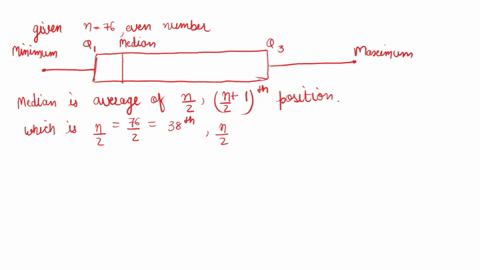 given n=76, even number
Minimum Q₁ Median Q₃ Maximum
Median is average of n/2, (n/2 + 1)ᵗʰ position.
which is n/2 = 76/2 = 38ᵗʰ, n/2